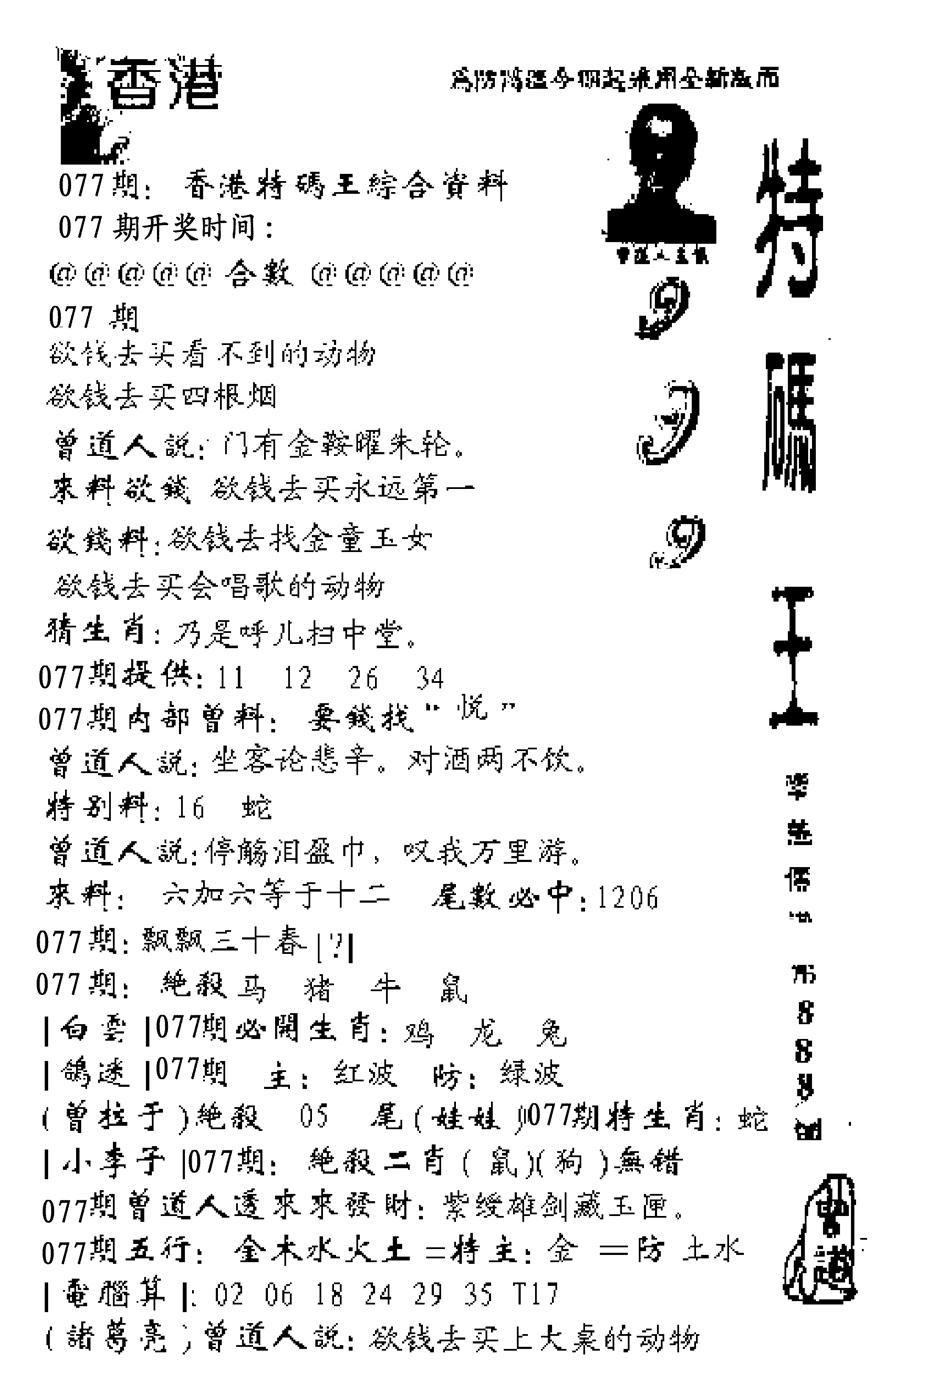 香港
為防濤混今期起采用全新版面
077期： 香港特碼王綜合資料
077 期开奖时间：
@@@@@ 合數 @@@@@
077 期
欲钱去买看不到的动物
欲钱去买四根烟
曾道人説：门有金鞍曜朱轮。
來料欲錢 欲钱去买永远第一
欲錢料：欲钱去找金童玉女
欲钱去买会唱歌的动物
猜生肖：乃是呼儿扫中堂。
077期提供：11 12 26 34
077期内部曾料： 要錢找“悦”
曾道人説：坐客论悲辛。对酒两不饮。
特别料：16 蛇
曾道人説：停觞泪盈巾，叹我万里游。
來料： 六加六等于十二 尾數必中：1206
077期：飘飘三十春|?|
077期： 絶殺马 猪 牛 鼠
|白雲|077期必開生肖：鸡 龙 兔
|鴿迷|077期 主：红波 防：绿波
(曾拉于)絶殺 05 尾(娃娃)077期特生肖：蛇
|小李子|077期： 絶殺二肖(鼠)(狗)無错
077期曾道人透來來發財：紫绶雄剑藏玉匣。
077期五行： 金木水火土=特主：金 =防 土水
|電腦算|：02 06 18 24 29 35 T17
(諸葛亮)曾道人説：欲钱去买上大桌的动物
曾道人主編
特碼王
888
曾道